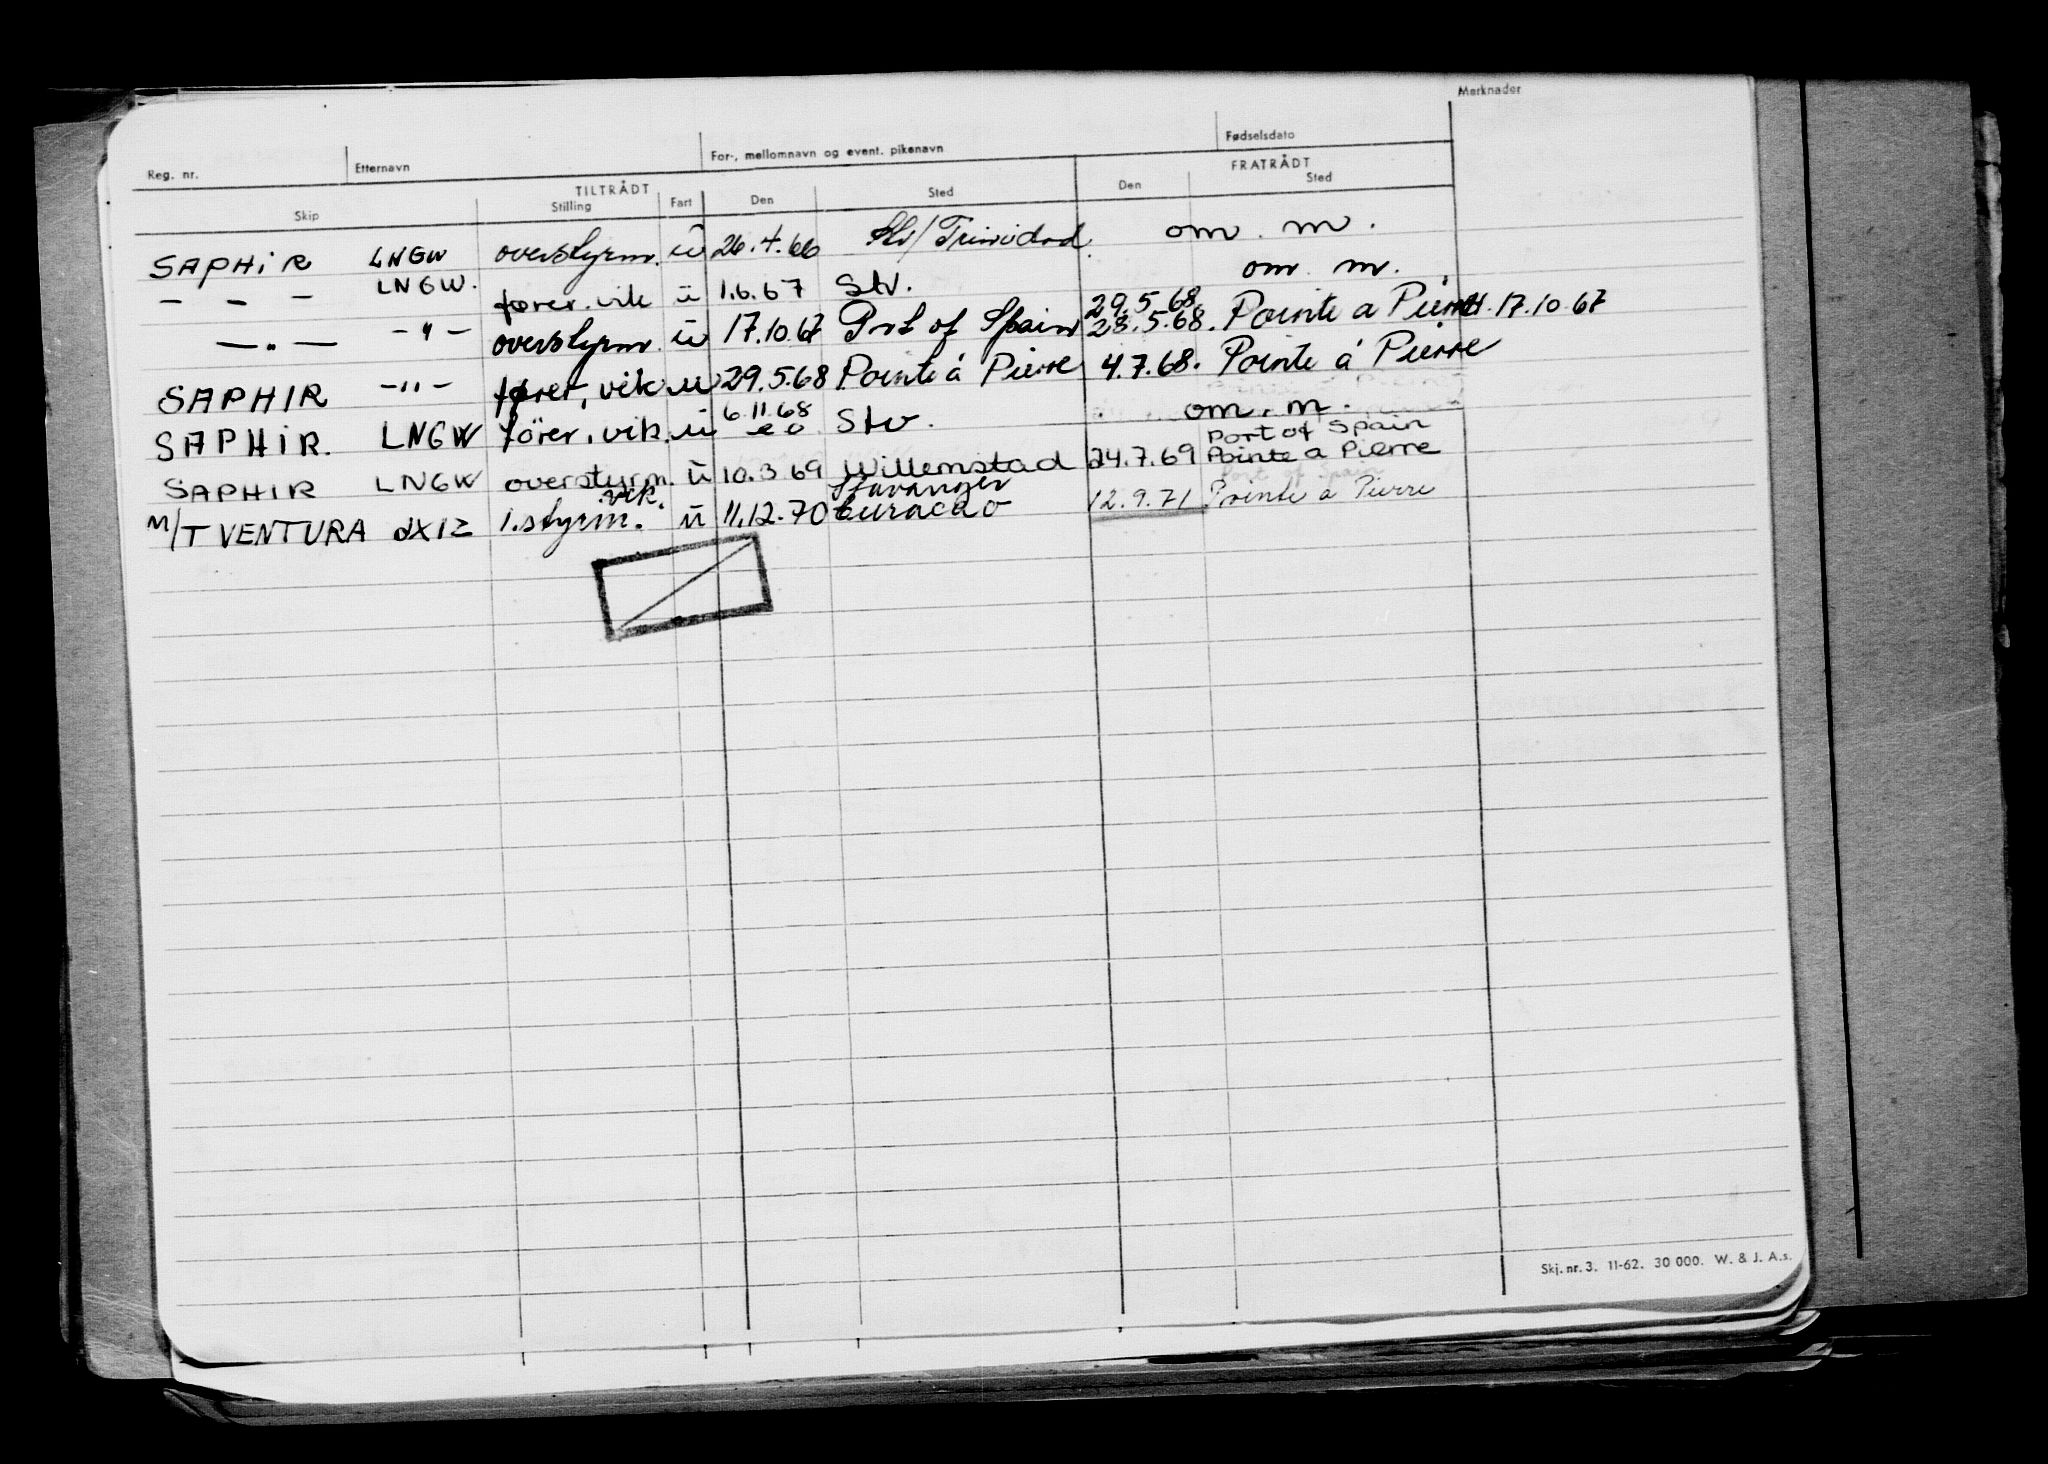 Merknader
Reg. nr. Etternavn For-, mellomnavn og event. pikenavn Fødselsdato
TILTRÅDT FRATRÅDT
Skip Stilling Fart Den Sted Den Sted
SAPHIR LNGW overstyrm. u 26.4.66 Trinidad om. m.
- - - LNGW. fører. vik u 1.6.67 Stv. om. m.
29.5.68
- " - - " - overstyrm. u 17.10.67 Port of Spain 28.5.68. Pointe a Pierre 17.10.67
SAPHIR - " - fører, vik. u 29.5.68 Pointe á Pierre 4.7.68. Pointe á Pierre
6.11.68
SAPHIR. LNGW fører. vik. u Stv. om. m.
Port of Spain
SAPHIR LNGW overstyrm. u 10.3 69 Willemstad 24.7.69 Pointe a Pierre
vik. Stavanger Port of Spain
M/T VENTURA 1. styrm. u 11.12.70 Curacao 12.9.71 Pointe a Pierre
Skj. nr. 3. 11-62. 30 000. W. & J. A.s.